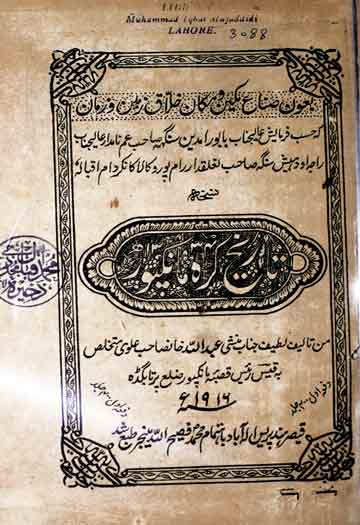 Muhammad Iqbal Mujaddadi
LAHORE. 3088
بعون صناع مکین و مکان خلاق زمین و زمان
کہ حسب فرمایش عالیجناب بابو رامدین سنگہ صاحب عم نامدار عالیجناب
راجہ اودہیش سنگہ صاحب تعلقدار رام پور و کالاکانکر دام اقبالہ
تاریخ کڑہ مانکپور
من تالیف لطیف جناب منشی عبداللہ خانصاحب علوی متخلص
بہ قیس رئیس قصبہ مانکپور ضلع پرتابگڈہ
۱۹۱۶ء
دفعہ اول جلد
قیصر ہند پریس الہ آباد باہتمام محمد فصیح اللہ مینیجر طبع شد
ذخیرہ